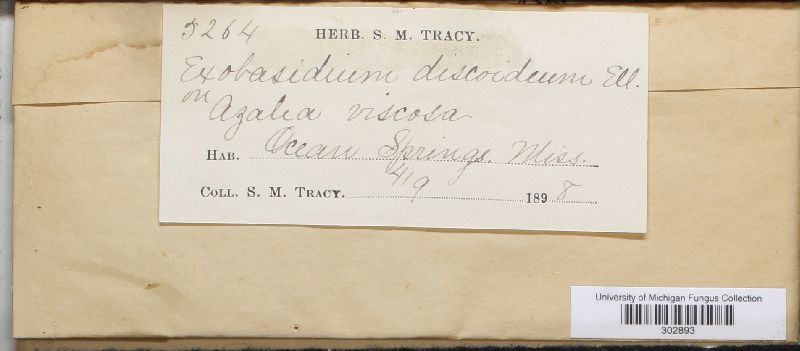 5264 HERB. S. M. TRACY.
Exobasidium discoideum Ell.
on Azalea viscosa
HAB. Ocean Springs. Miss.
COLL. S. M. TRACY. 4/9 1898
University of Michigan Fungus Collection
302893